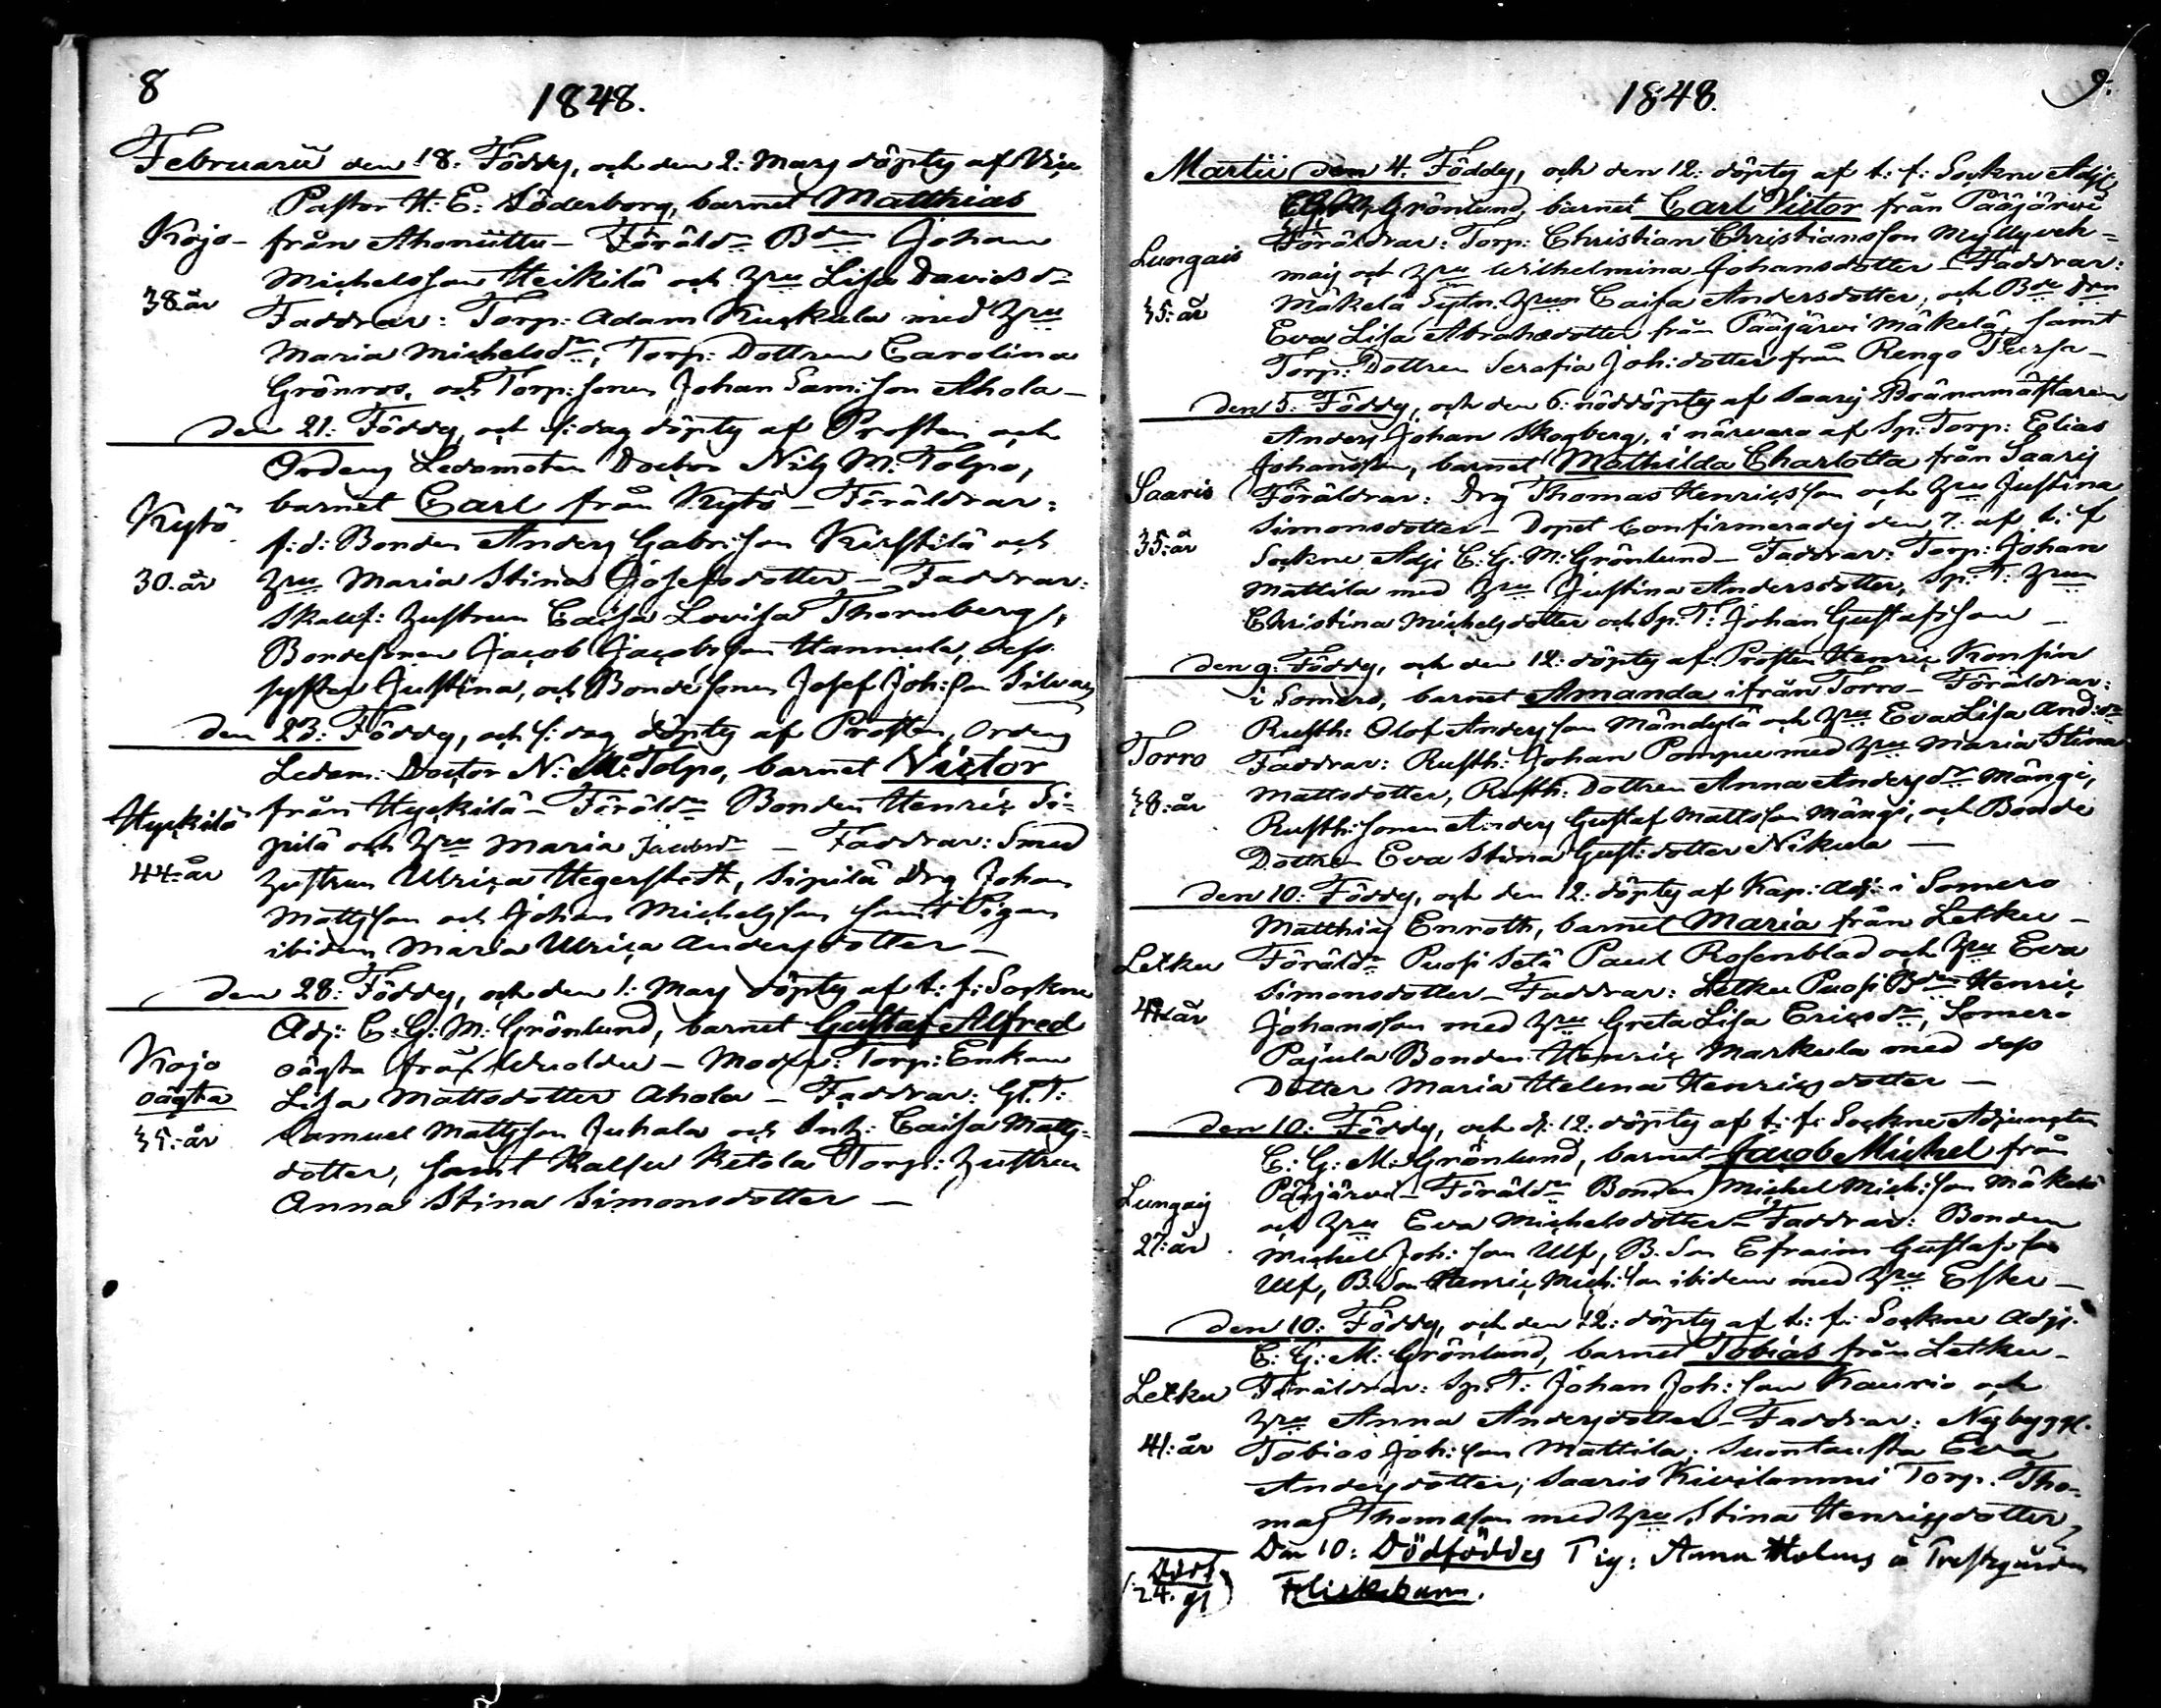 8
1848.
Februarii den 18: Föddes, och den 2: Mars döptes af Vice
Pastor H: E: Söderborg, barnet Matthias
Kojo- från Ahoniittu- Föräld:r B:den Johan
Michelsson Heikilä och h:u Lisa Davidsd:r
38:år Faddrar: Torp: Adam Kuskula med h:u
Maria Michelsd:r, Torp: Dottren Carolina
Grönros, och Torp: sonen Johan Sam:son Ahola-
den 21: Föddes, och s: dag döptes af Prosten och
Ordens Ledamoten Doctor Nils M: Tolpo,
Kytö barnet Carl från Kytö - Föräldrar:
f:d: Bonden Anders Gabr:son Kirstilä och
30:år h:u Maria Stina Josefsdotter - Faddrar:
Skallf: hustrun Caisa Lovisa Thornberg,
Bondesonen Jacob Jacobsson Hannula, dess
syster Justina, och Bondesonen Josef Joh:son Silvas
den 23: Föddes, och s: dag döptes af Prosten, Ordens
Ledam: Doctor N: M: Tolpo, barnet Victor
Hyckilä från Hyckilä - Föräld:r Bonden Henric Si-
pilä och h:u Maria Jacobsd:r - Faddrar: Smed
44:år hustrun Ulrica Hegerstedt, Sipilä Drg Johan
Mattsson och Johan Michelsson samt Pigan
ibidem Maria Ulrica Andersdotter -
den 28: Föddes, och den 1: Mars döptes af t: f: Sockne
Adj: C: G: M: Grönlund, barnet Gustaf Alfred
Kojo oägta från - Modr: Torp: Enkan
oägta Lisa Mattsdotter Ahola - Faddrar: Gl. T:
35:år Samuel Mattsson Juhala och Enk: Caisa Matts-
dotter, samt Kalsu Ketola Torp: hustrun
Anna Stina Simonsdotter -
1848. 9.
Martii den 4: Föddes, och den 12: döptes af t: f: Sockne Adj:
Grönlund, barnet Carl Victor från Pääjärvi
Lungais Föräldrar: Torp: Christian Christiansson Myllyveh-
mas och h:u Wilhelmina Johansdotter - Faddrar:
35:år Mäkelä Sytn: h:un Caisa Andersdotter, och B:de D:en
Eva Lisa Abrahsdotter från Pääjärvi Mäkelä, samt
Torp: Dottren Serafia Joh:dotter från Rengo
den 5: Föddes, och den 6: nöddöptes af Saaris Brännmästaren
Anders Johan Skogberg, i närvaro af Sp: Torp: Elias
Johansson, barnet Mathilda Charlotta från Saaris
Saaris Föräldrar: Drg Thomas Henricsson och h:u Justina
Simonsdotter - Dopet confirmerades den 7: af t: f
35:år Sockne Adj: C: G: M: Grönlund - Faddrar: Torp: Johan
Mattila med h:u Justina Andersdotter, Sp: T: h:un
Christina Michelsdotter och Sp: T: Johan Gustafsson -
den 9: Föddes, och den 12: döptes af Prosten Henric Konsin
i Somero, barnet Amanda ifrån Torro - Föräldrar:
Rusth: Olof Andersson Mändylä och h:u Eva Lisa And:d:r
Torro Faddrar: Rusth: Johan Pompu med h:u Maria Stina
Mattsdotter, Rusth: Dottren Anna Andersd:r Mängi,
38:år Rusth: sonen Anders Gustaf Mattsson Mängi, och Bonde
Dottren Eva Stina Gust:dotter Nikula -
den 10: Föddes, och den 12: döptes af Kap: Adj: i Somero
Matthias Enroth, barnet Maria från Letku -
Letku Föräld:r Puosi Setä Paul Rosenblad och h:u Eva
Simonsdotter - Faddrar: Letku Puosi B:den Henric
år Johansson med h:u Greta Lisa Ericsd:r, Somero
Pajula Bonden Henric Markula med dess
Dotter Maria Helena Henricsdotter -
den 10: Föddes, och d: 12: döptes af t: f: Sockne Adjuncten
C: G: M: Grönlund, barnet Jacob Michel från
Lungais Pääjärvi - Föräld:r Bonden Michel Mich:son Mäkelä
och h:u Eva Michelsdotter - Faddrar: Bonden
27:år Michel Joh:son Ulf, B. Son Efraim Gustafsson
Ulf, B. Son Henric Mich:son ibidem med h:u Ester -
den 10: Föddes, och den 12: döptes af t: f: Sockne Adj:
C: G: M: Grönlund, barnet Tobias från Letku -
Letku Föräldrar: Sp: T: Johan Joh:son Kaurio och
h:u Anna Andersdotter - Faddrar: Nybygg:
41:år Tobias Joh:son Mattila, Suontausta Eva
Andersdotter; Saaris Kivilammi Torp. Tho-
mas Thomasson med h:u Stina Henricsdotter,
Den 10: Dödföddes Pig: Anna Holms å Prestgården
(24. Flickebarn.